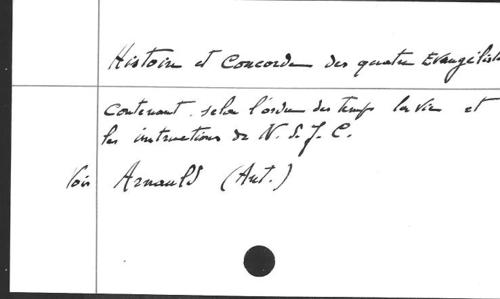 Histoire et Concorde des quatre Evangéliste
contenant, selon l'ordre des temps la vie et
les instructions de N. S. J. C.
Voir Arnauld (Ant.)